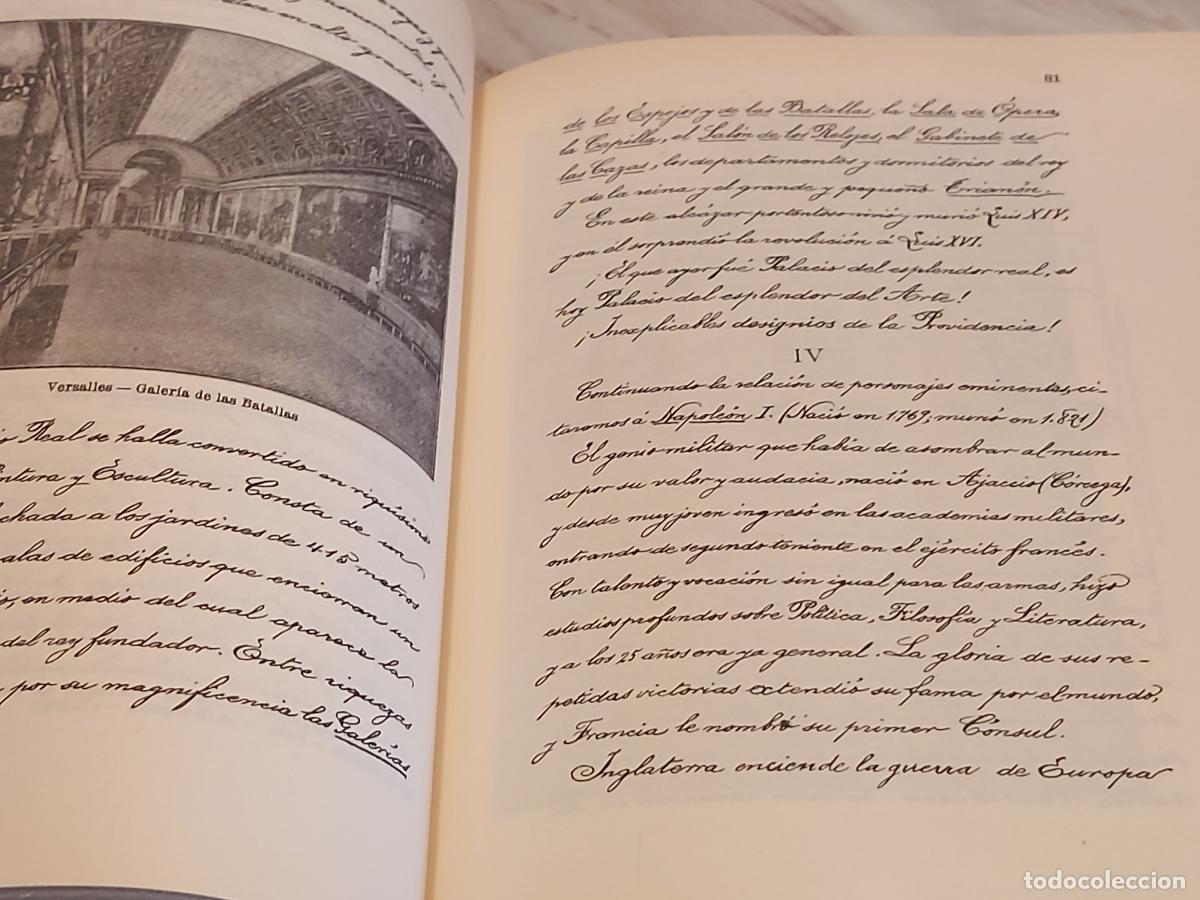 en alto grado.
Versalles — Galería de las Batallas
Real se halla convertido en riquísimo
y Escultura. Consta de un
a los jardines de 415 metros
alas de edificios que encierran un
en medio del cual aparece la
del rey fundador. Entre riquezas
por su magnificencia las Galerías
81
de los Espejos y de las Batallas, la Sala de Ópera,
la Capilla, el Salón de los Relojes, el Gabinete de
las Cazas, los departamentos y dormitorios del rey
y de la reina y el grande y pequeño Trianón.
En este alcázar portentoso vivió y murió Luis XIV,
y en él sorprendió la revolución á Luis XVI.
¡El que ayer fué Palacio del esplendor real, es
hoy Palacio del esplendor del Arte!
¡Inexplicables designios de la Providencia!
IV
Continuando la relación de personajes eminentes, ci-
taremos á Napoleón I. (Nació en 1769; murió en 1.821)
El genio militar que había de asombrar al mun-
do por su valor y audacia, nació en Ajaccio (Córcega),
y desde muy joven ingresó en las academias militares,
entrando de segundo teniente en el ejército francés.
Con talento y vocación sin igual para las armas, hizo
estudios profundos sobre Política, Filosofía y Literatura,
y a los 25 años era ya general. La gloria de sus re-
petidas victorias extendió su fama por el mundo,
y Francia le nombró su primer Cónsul.
Inglaterra enciende la guerra de Europa
todocoleccion